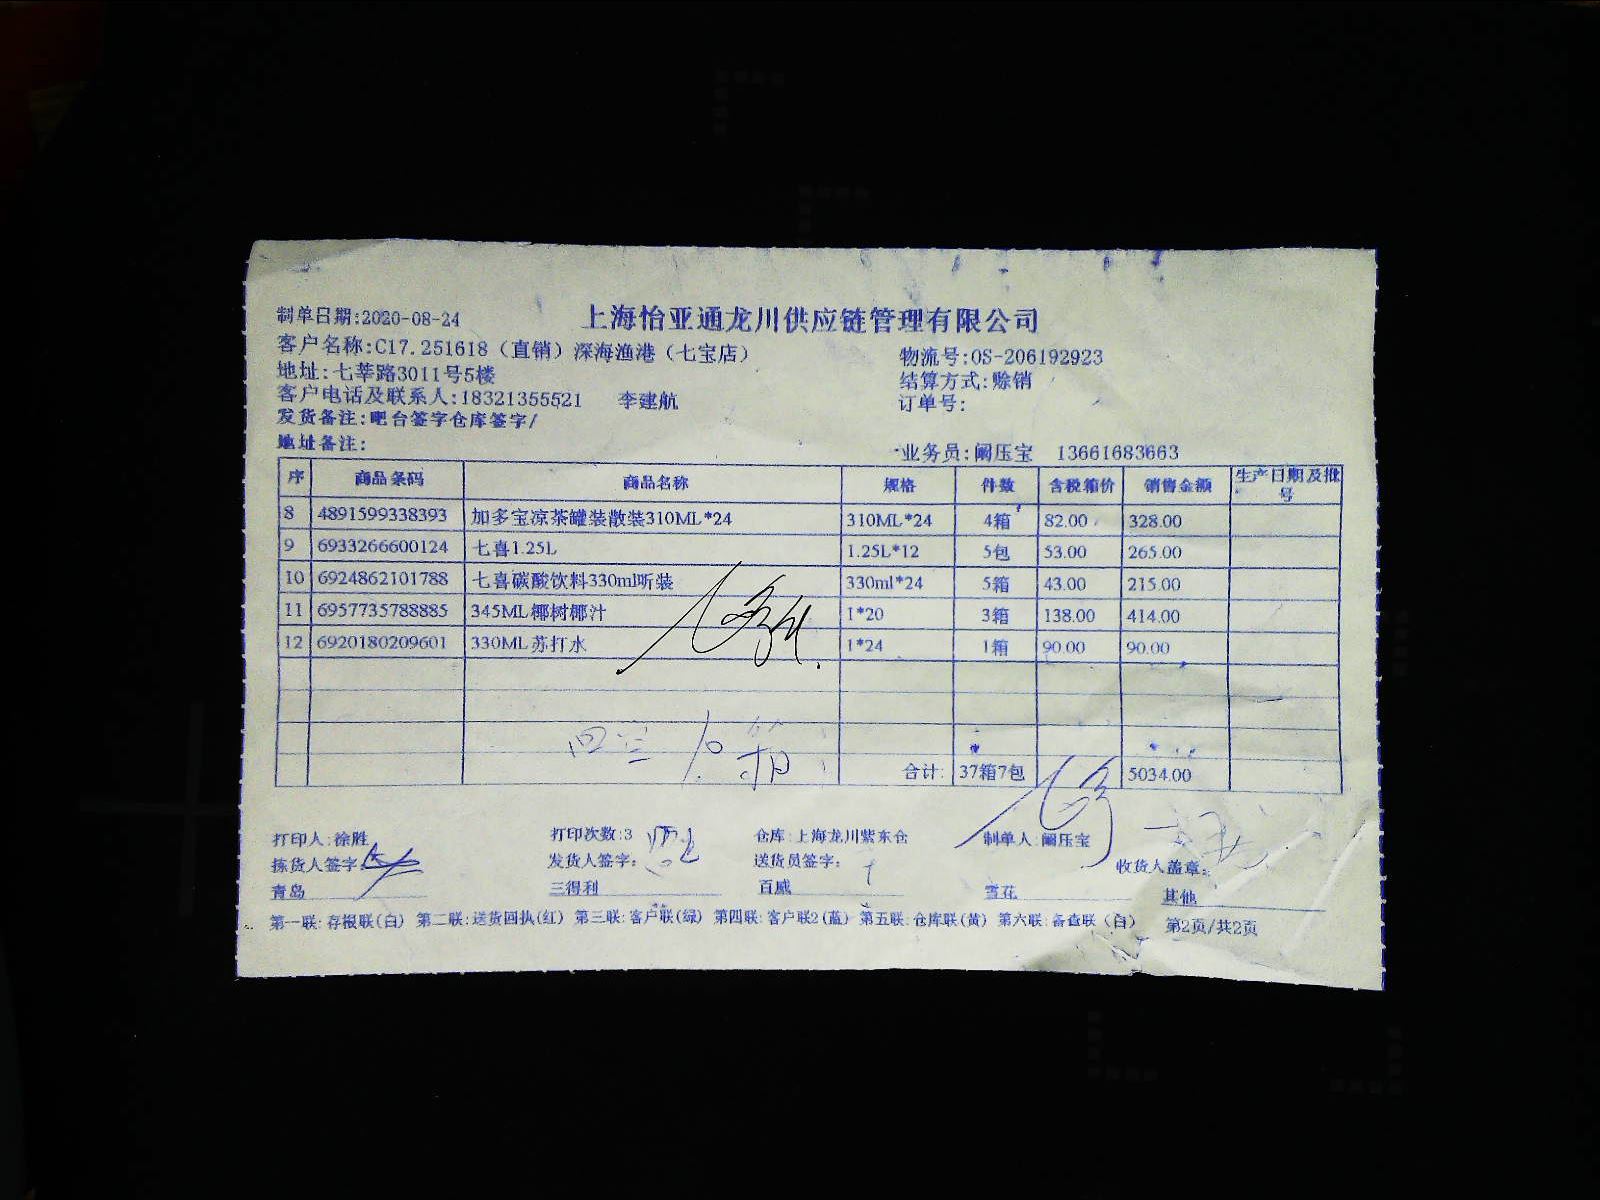 制单日期:2020-08-24 上海怡亚通龙川供应链管理有限公司
客户名称:C17.251618（直销）深海渔港（七宝店） 物流号:OS-206192923
地址:七莘路3011号5楼 结算方式:赊销
客户电话及联系人:18321355521 李建航 订单号:
发货备注:吧台签字仓库签字/
地址备注: 业务员:阚压宝 13661683663
序 商品条码 商品名称 规格 件数 含税箱价 销售金额 生产日期及批号
8 4891599338393 加多宝凉茶罐装散装310ML*24 310ML*24 4箱 82.00 328.00
9 6933266600124 七喜1.25L 1.25L*12 5包 53.00 265.00
10 6924862101788 七喜碳酸饮料330ml听装 330ml*24 5箱 43.00 215.00
11 6957735788885 345ML椰树椰汁 1*20 3箱 138.00 414.00
12 6920180209601 330ML苏打水 1*24 1箱 90.00 90.00
合计: 37箱7包 5034.00
打印人:徐胜 打印次数:3 仓库:上海龙川紫东仓 制单人:阚压宝
拣货人签字: 发货人签字: 送货员签字: 收货人盖章:
青岛 三得利 百威 雪花 其他
第一联:存根联(白) 第二联:送货回执(红) 第三联:客户联(绿) 第四联:客户联2(蓝) 第五联:仓库联(黄) 第六联:备查联(白) 第2页/共2页